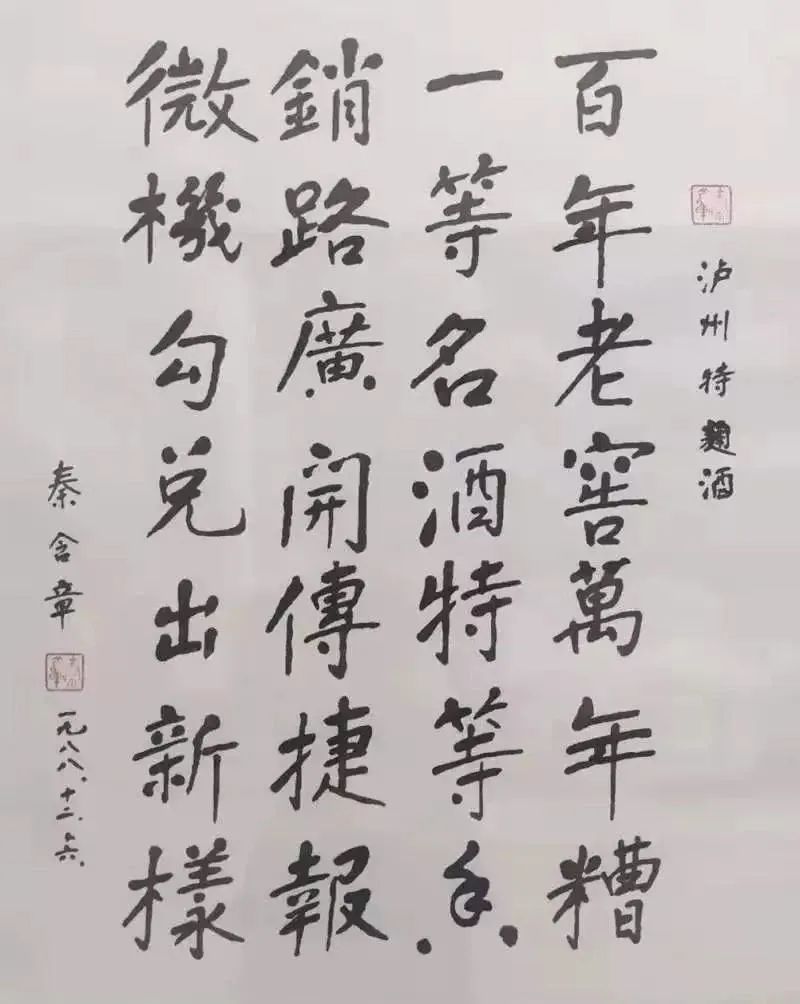 泸州特麯酒
百年老窖萬年糟
一等名酒特等
銷路廣開傳捷報
微機勾兑出新樣
秦含章
一九八八.十二.